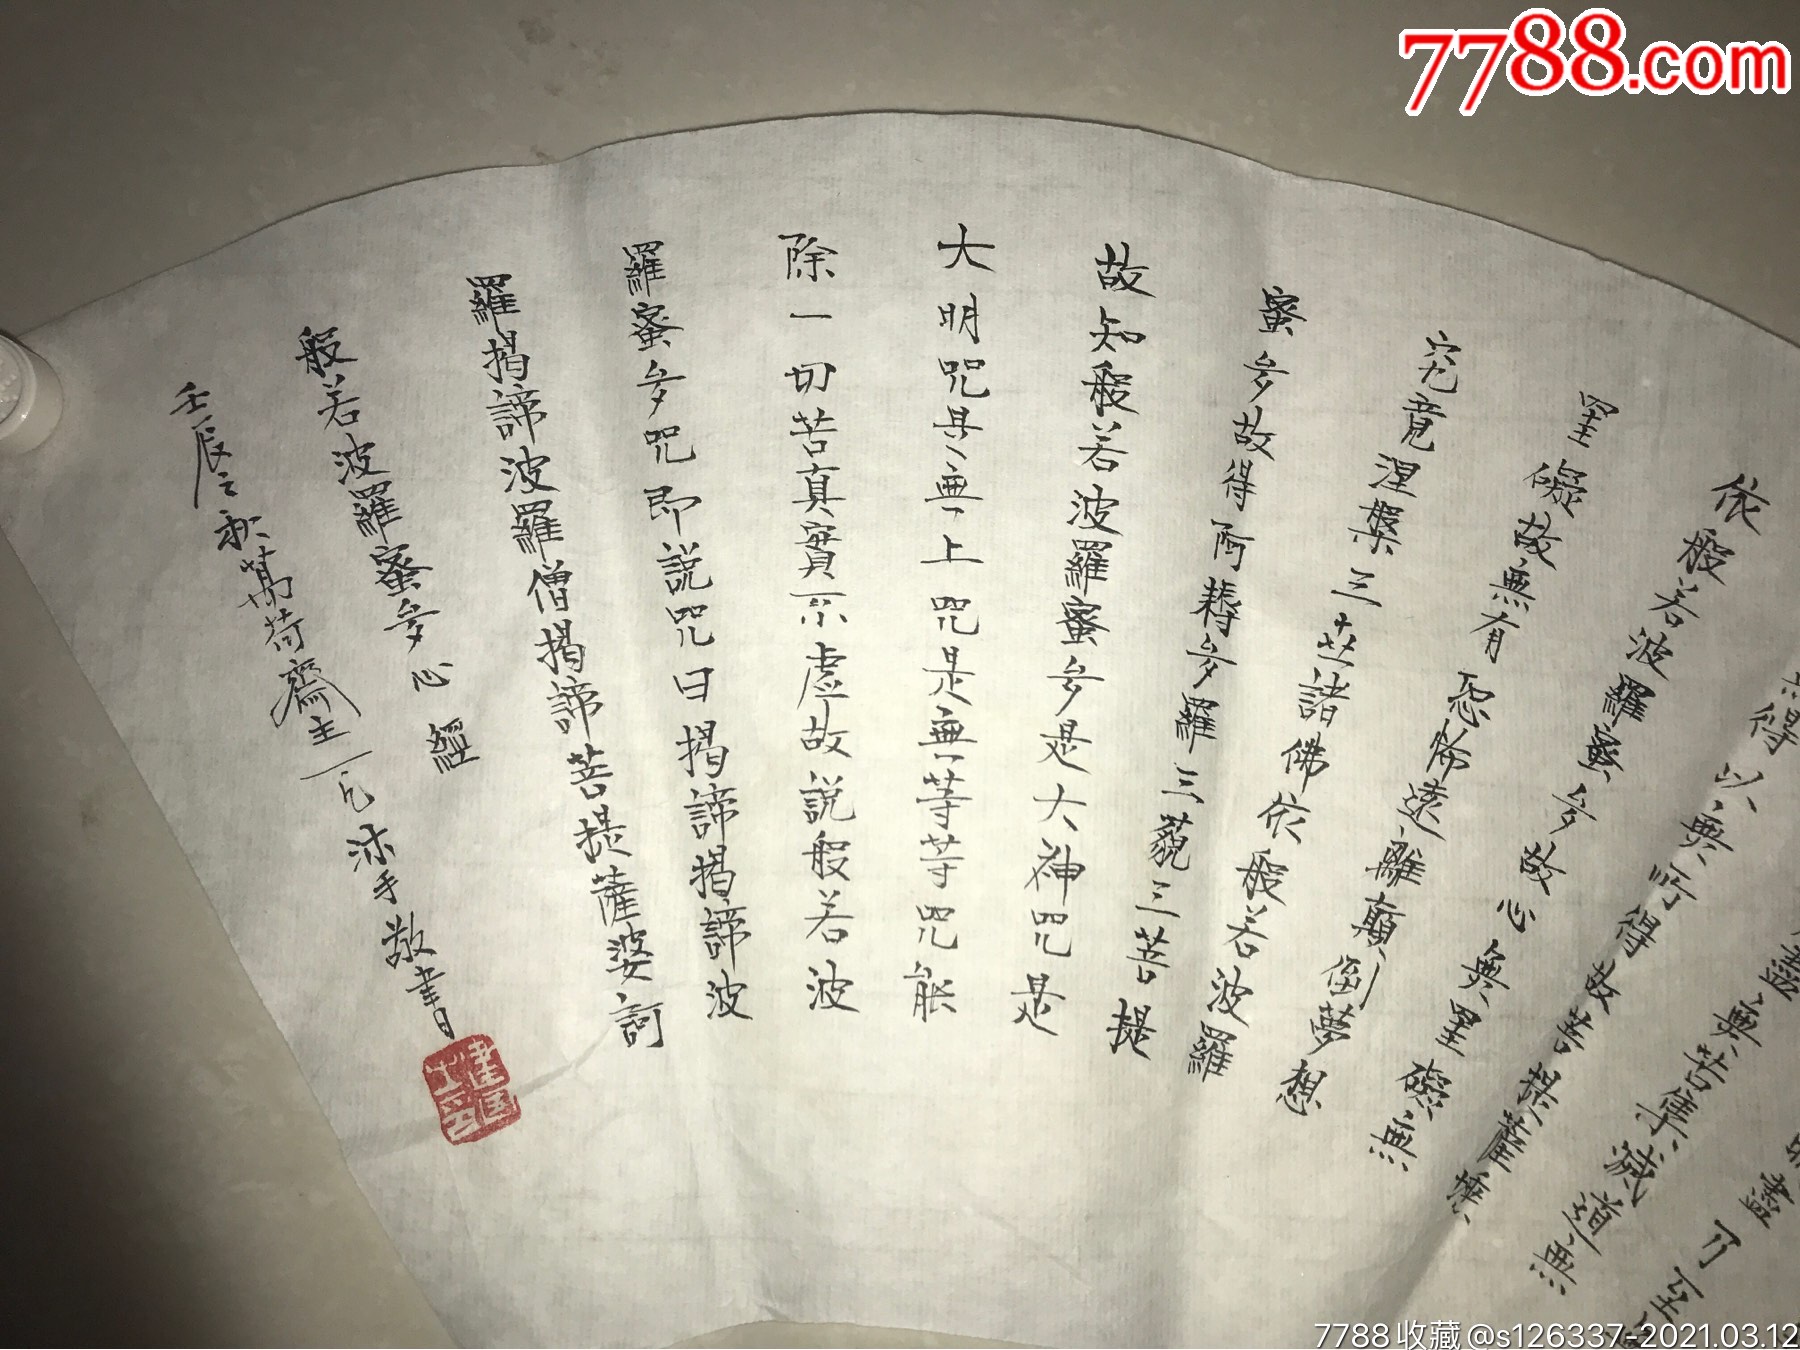 盡乃至
盡無苦集滅道無
無得以無所得故菩提薩埵
依般若波羅蜜多故心無罣礙無
罣礙故無有恐怖遠離顛倒夢想
究竟涅槃三世諸佛依般若波羅
蜜多故得阿耨多羅三藐三菩提
故知般若波羅蜜多是大神咒是
大明咒是無上咒是無等等咒能
除一切苦真實不虛故說般若波
羅蜜多咒即說咒曰揭諦揭諦波
羅揭諦波羅僧揭諦菩提薩婆訶
般若波羅蜜多心經
壬辰之秋萬荷齋主一凡沐手敬書
7788.com
7788收藏@s126337-2021.03.12